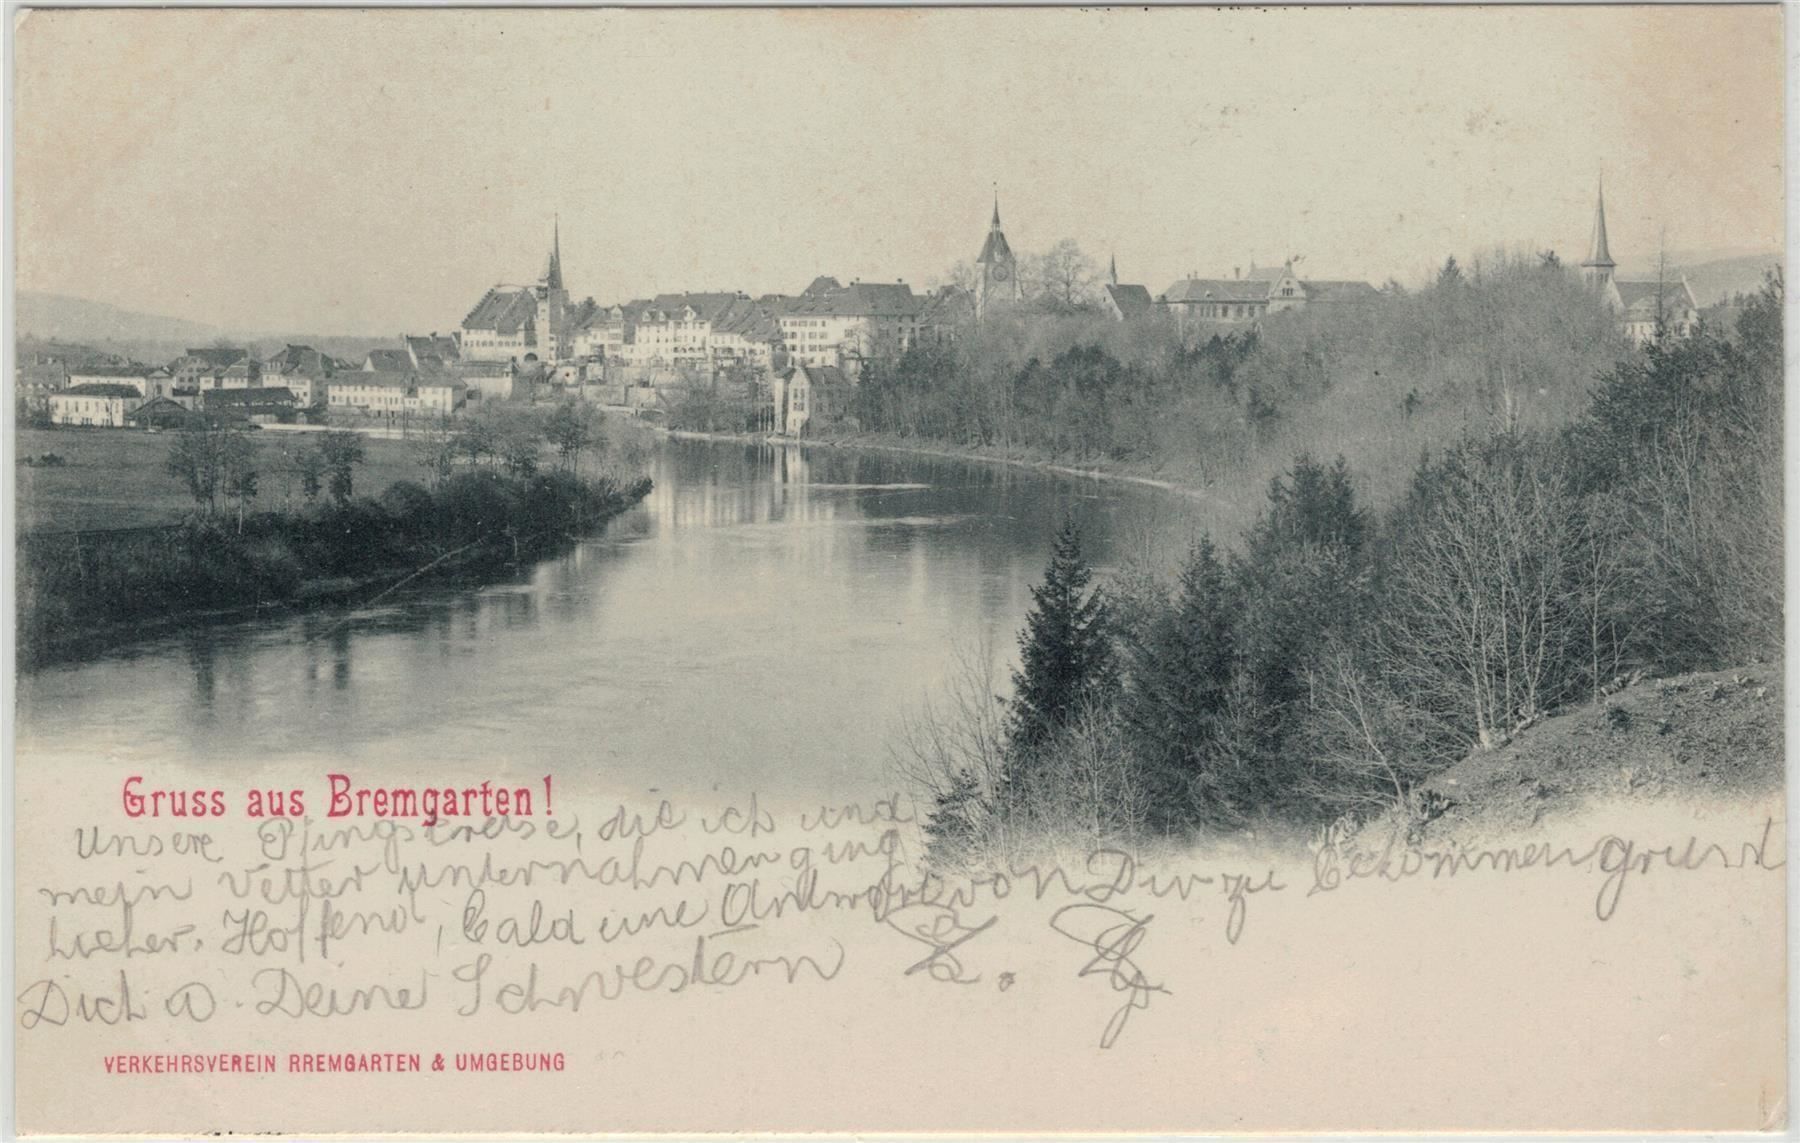 Gruss aus Bremgarten!
Unsere Pfingstreise, die ich und
mein Vetter unternahmen ging
sicher. Hoffend, bald eine Antwort von Dir zu bekommen grusst
Dich D. Deine Schwestern
VERKEHRSVEREIN RREMGARTEN & UMGEBUNG